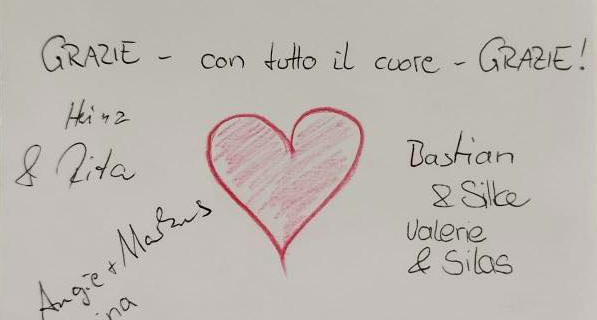 GRAZIE - con tutto il cuore - GRAZIE!
Heinz
& Rita
Bastian
& Silke
Valerie
& Silas
Angie + Markus